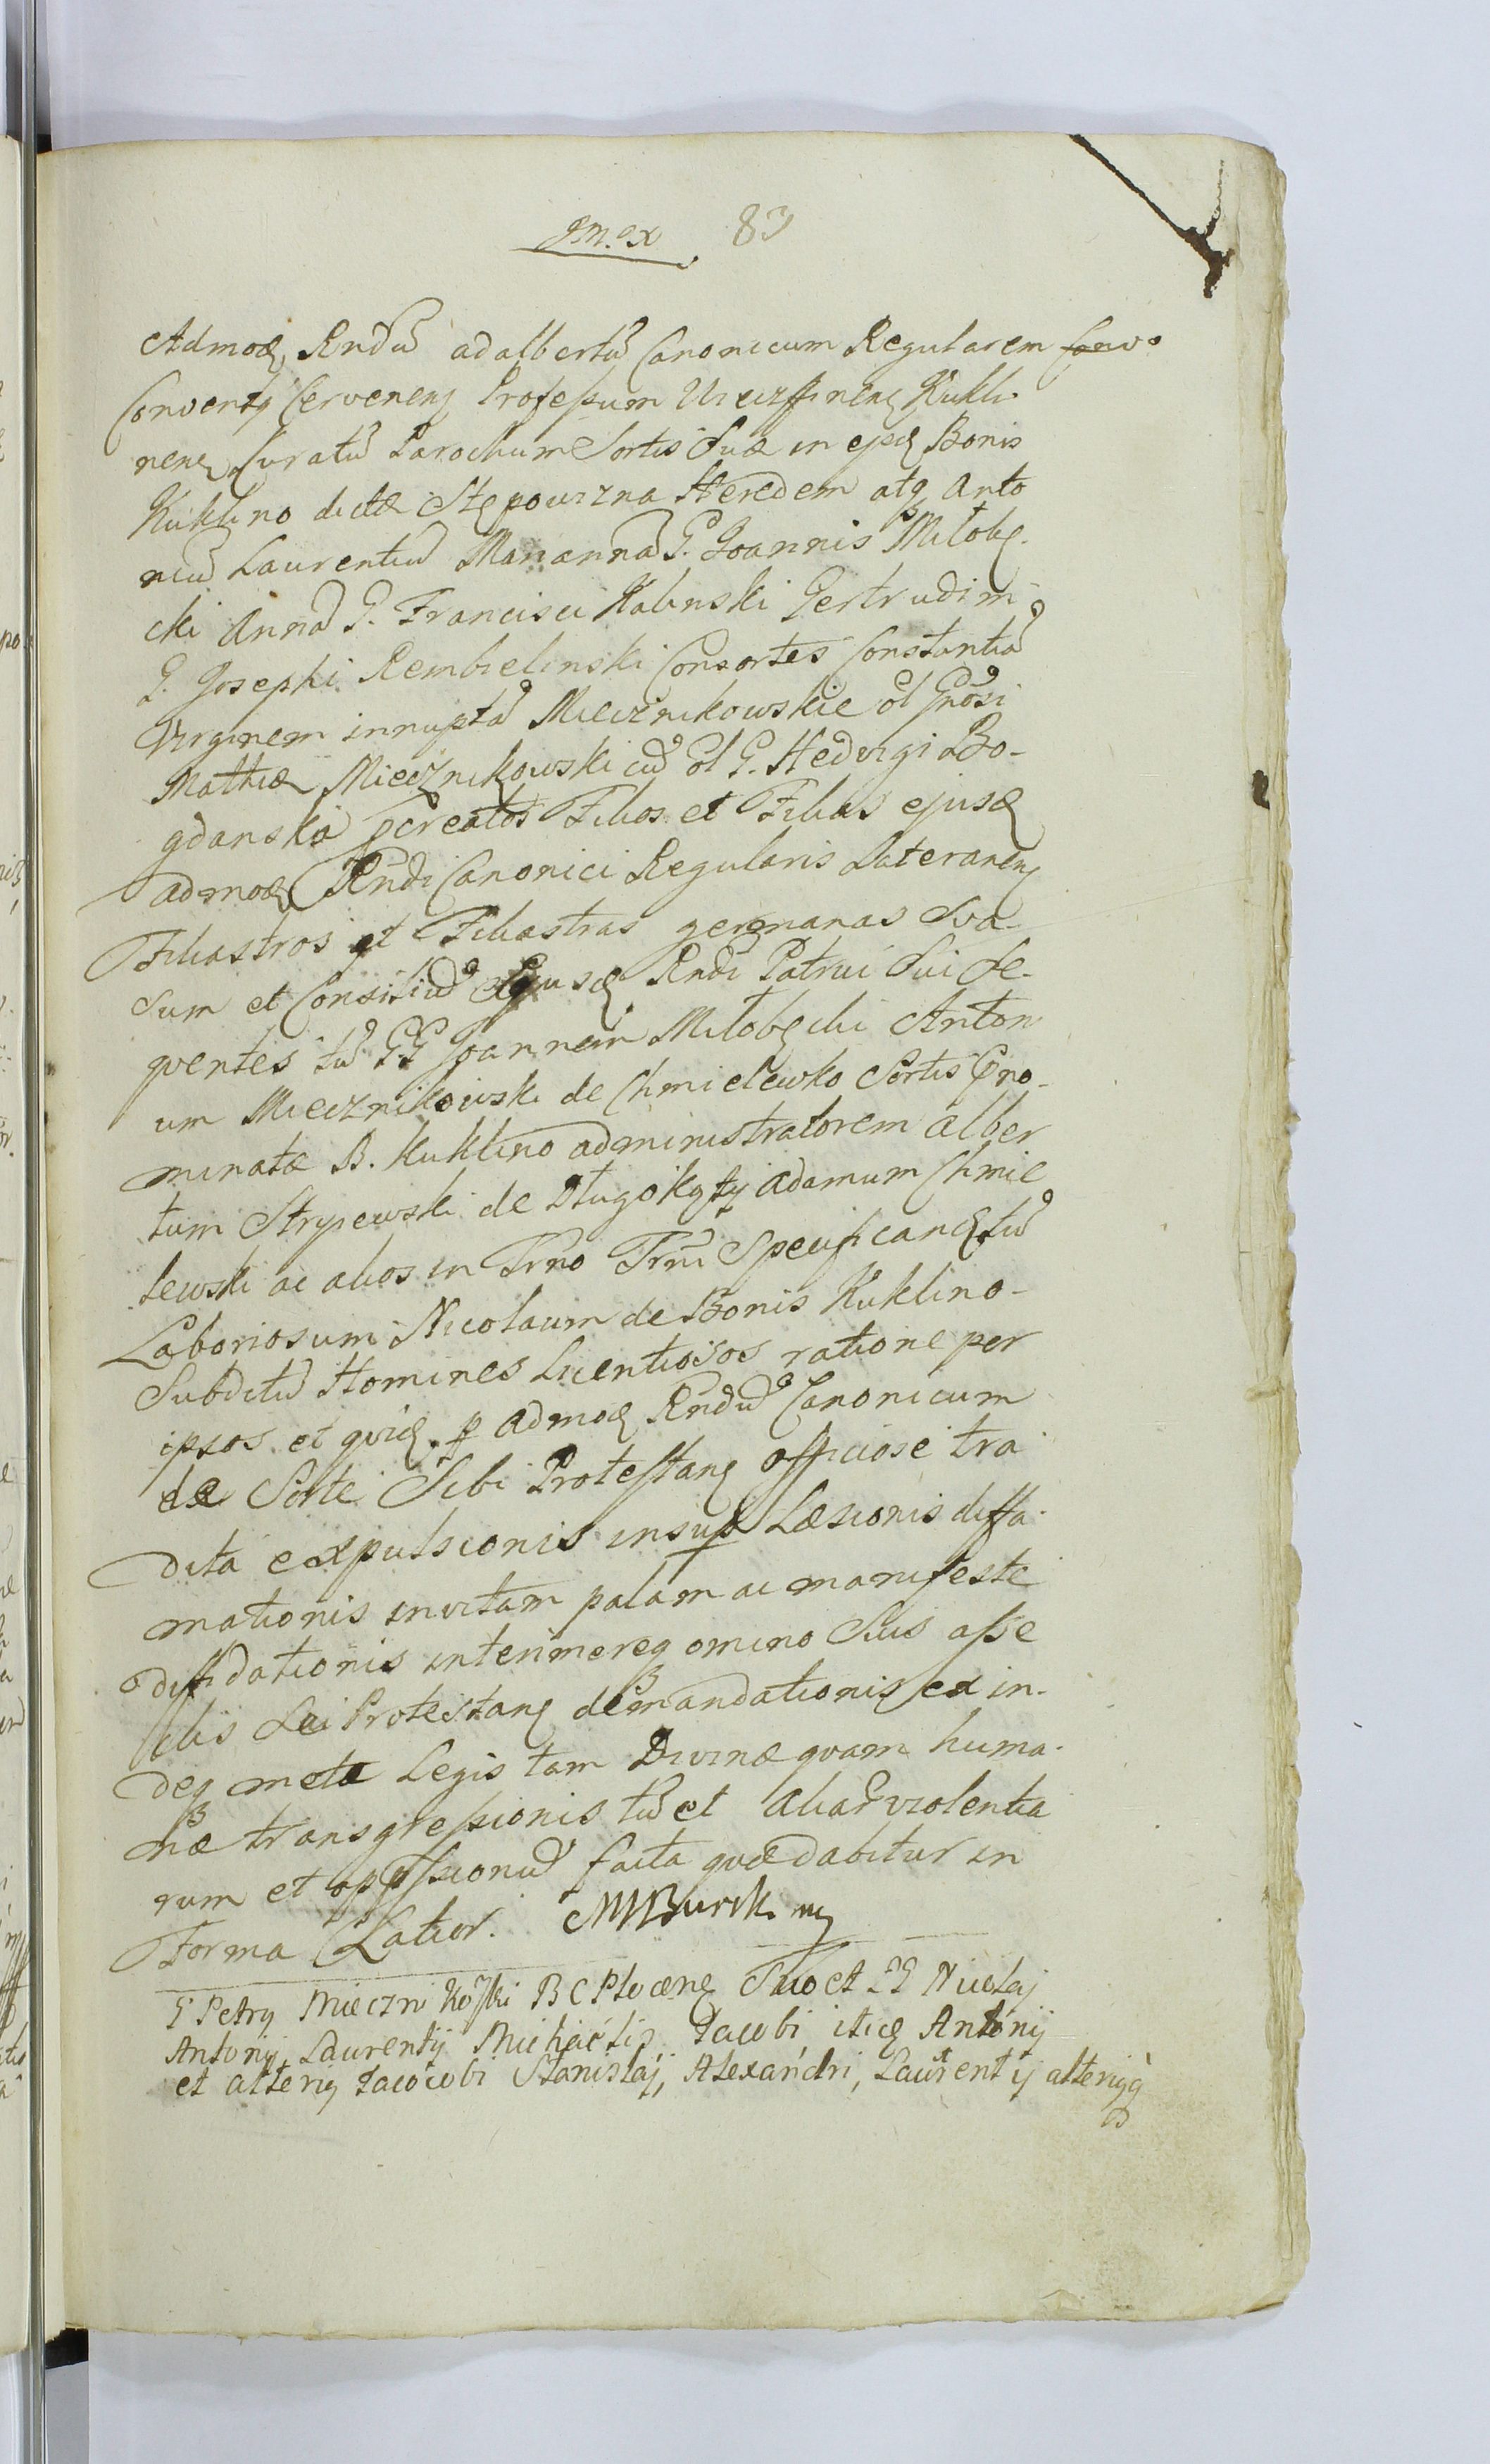 83
Admođ Rndũ adalbertũ Canonicum Regularem Conv
Conventꝯ Cervenenꝭ Professum Kukli
nenꝭ Curatũ Parochum Sortis Suæ in ejsđ Bonis
Kuklino dictæ Stępowizna Heredem atq̃ Anto
niũ Laurentiũ Mariannã G. Joannis Miłobę.
cki Annã G. Francisci Kalinski Gertrudim
G. Josephi Rembielinski Consortes Constantiã
Virginem innuptã Miecznikowskie ol Gnosi
Mathiæ Miecznikowski cũ ol G. Hedvigi Bo-
gdanskã pcreatos Filios et Filias ejusđ
admođ Rndi Canonici Regularis Lateranenꝭ
Filiastros et Filiastras germanas Sva
sum et Consiliũ Ejusđ Rndi Patrui Sui Se-
qventes tũ GG Joannem Miłobęcki Anton
um Miecznikowski de Chmielewko Sortis Pno-
minatæ B. Kuklino administratorem alber
tum Stryiewski de Długokęty adamum Chmie
lewski ac alios in Trno Trni Specificanđ tũ
Laboriosum Nicolaum de Bonis Kuklino-
Subditũ Homines Licentiosos ratione per
ipsos et qviđ p admođ Rndũ Canonicum
de Sorte Sibi Protestanꝭ officiose tra
dita expulsionis insup Læsionis diffa-
mationis invitam palam ac manifeste
diffidationis interimereq̃ omino Suis asse
clis Lei Protestanꝭ demandationis ex in-
deq̃ metæ Legis tam Divinæ qvam huma-
næ transgressionis tũ et aliar violentia
rum et oppssionũ facta qvæ dabitur in
Forma Latior. MBurski mꝑ
G Petrꝯ Mieczniko͠ski B C Plocenꝭ Suo et GG Nicolaj
Antonij Laurentij Michaelis Jacobi itiđ Antonij
et alteriꝯ Jacocobi Stanislaj, Alexandri, Laurentij alteriꝯq̃